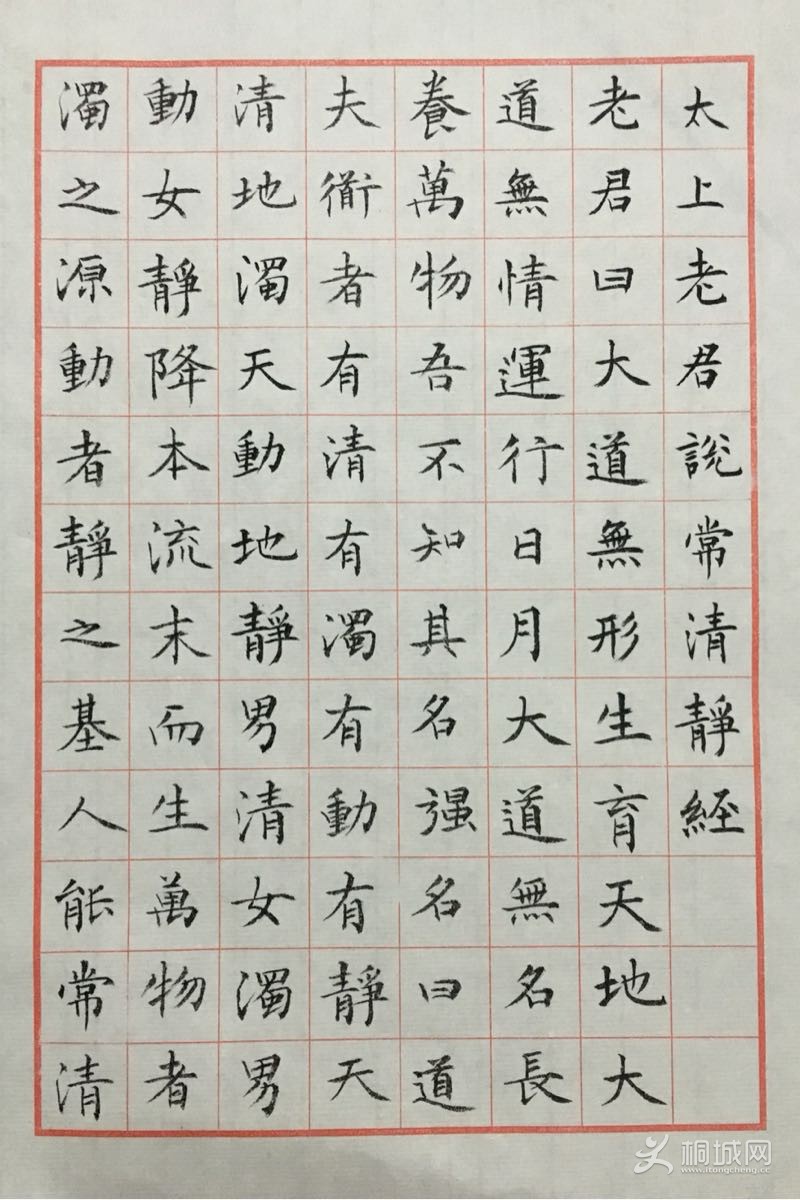 太上老君說常清靜經
老君曰大道無形生育天地大
道無情運行日月大道無名長
養萬物吾不知其名强名曰道
夫衜者有清有濁有動有靜天
清地濁天動地靜男清女濁男
動女靜降本流末而生萬物者
濁之源動者靜之基人能常清
桐城网
www.itongcheng.cc